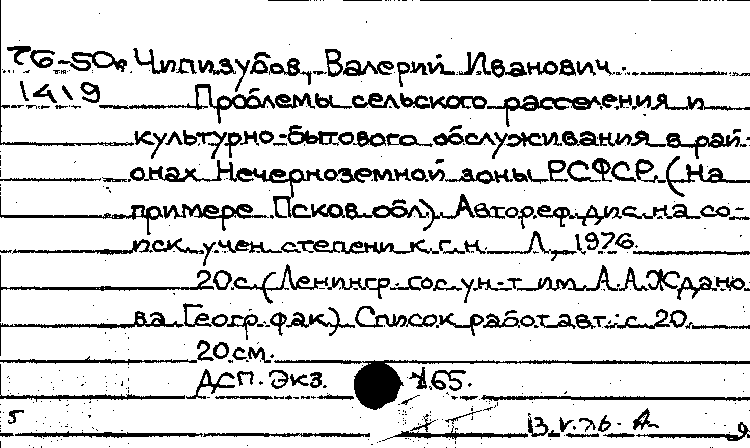 76-50в Чипизубов, Валерий Иванович.
1419 Проблемы сельского расселения и
культурно-бытового обслуживания в рай-
онах Нечерноземной зоны РСФСР. (На
примере Псков. обл). Автореф. дис. на со-
иск. учен. степени к.г.н. Л., 1976.
20с. (Ленингр. гос. ун-т им. А.А.Ждано
ва. Геогр. фак). Список работ авт.: с. 20.
20см.
ДСП. Экз. 165.
5 13.V.76.